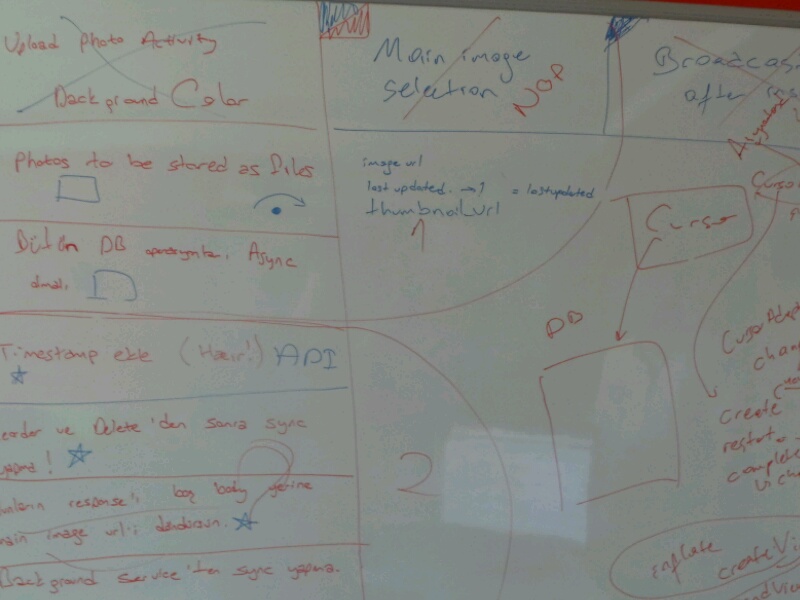 Upload Photo Activity
Background Color
Photos to be stored as Files
Bütün DB Async
Timestamp ekle (Hair!) API
ve Delete'den sonra sync
yapma!
response'u boş body yerine
main image url'i döndürsün.
Background service'ten sync yapma.
Main image
selection NOP
image url
last updated. = lastupdated
thumbnail url
2
Broadcas
after
Cursor
DB
CursorAdap
chan
create
restart
complete
UI ch
inflate
createVi
ndView